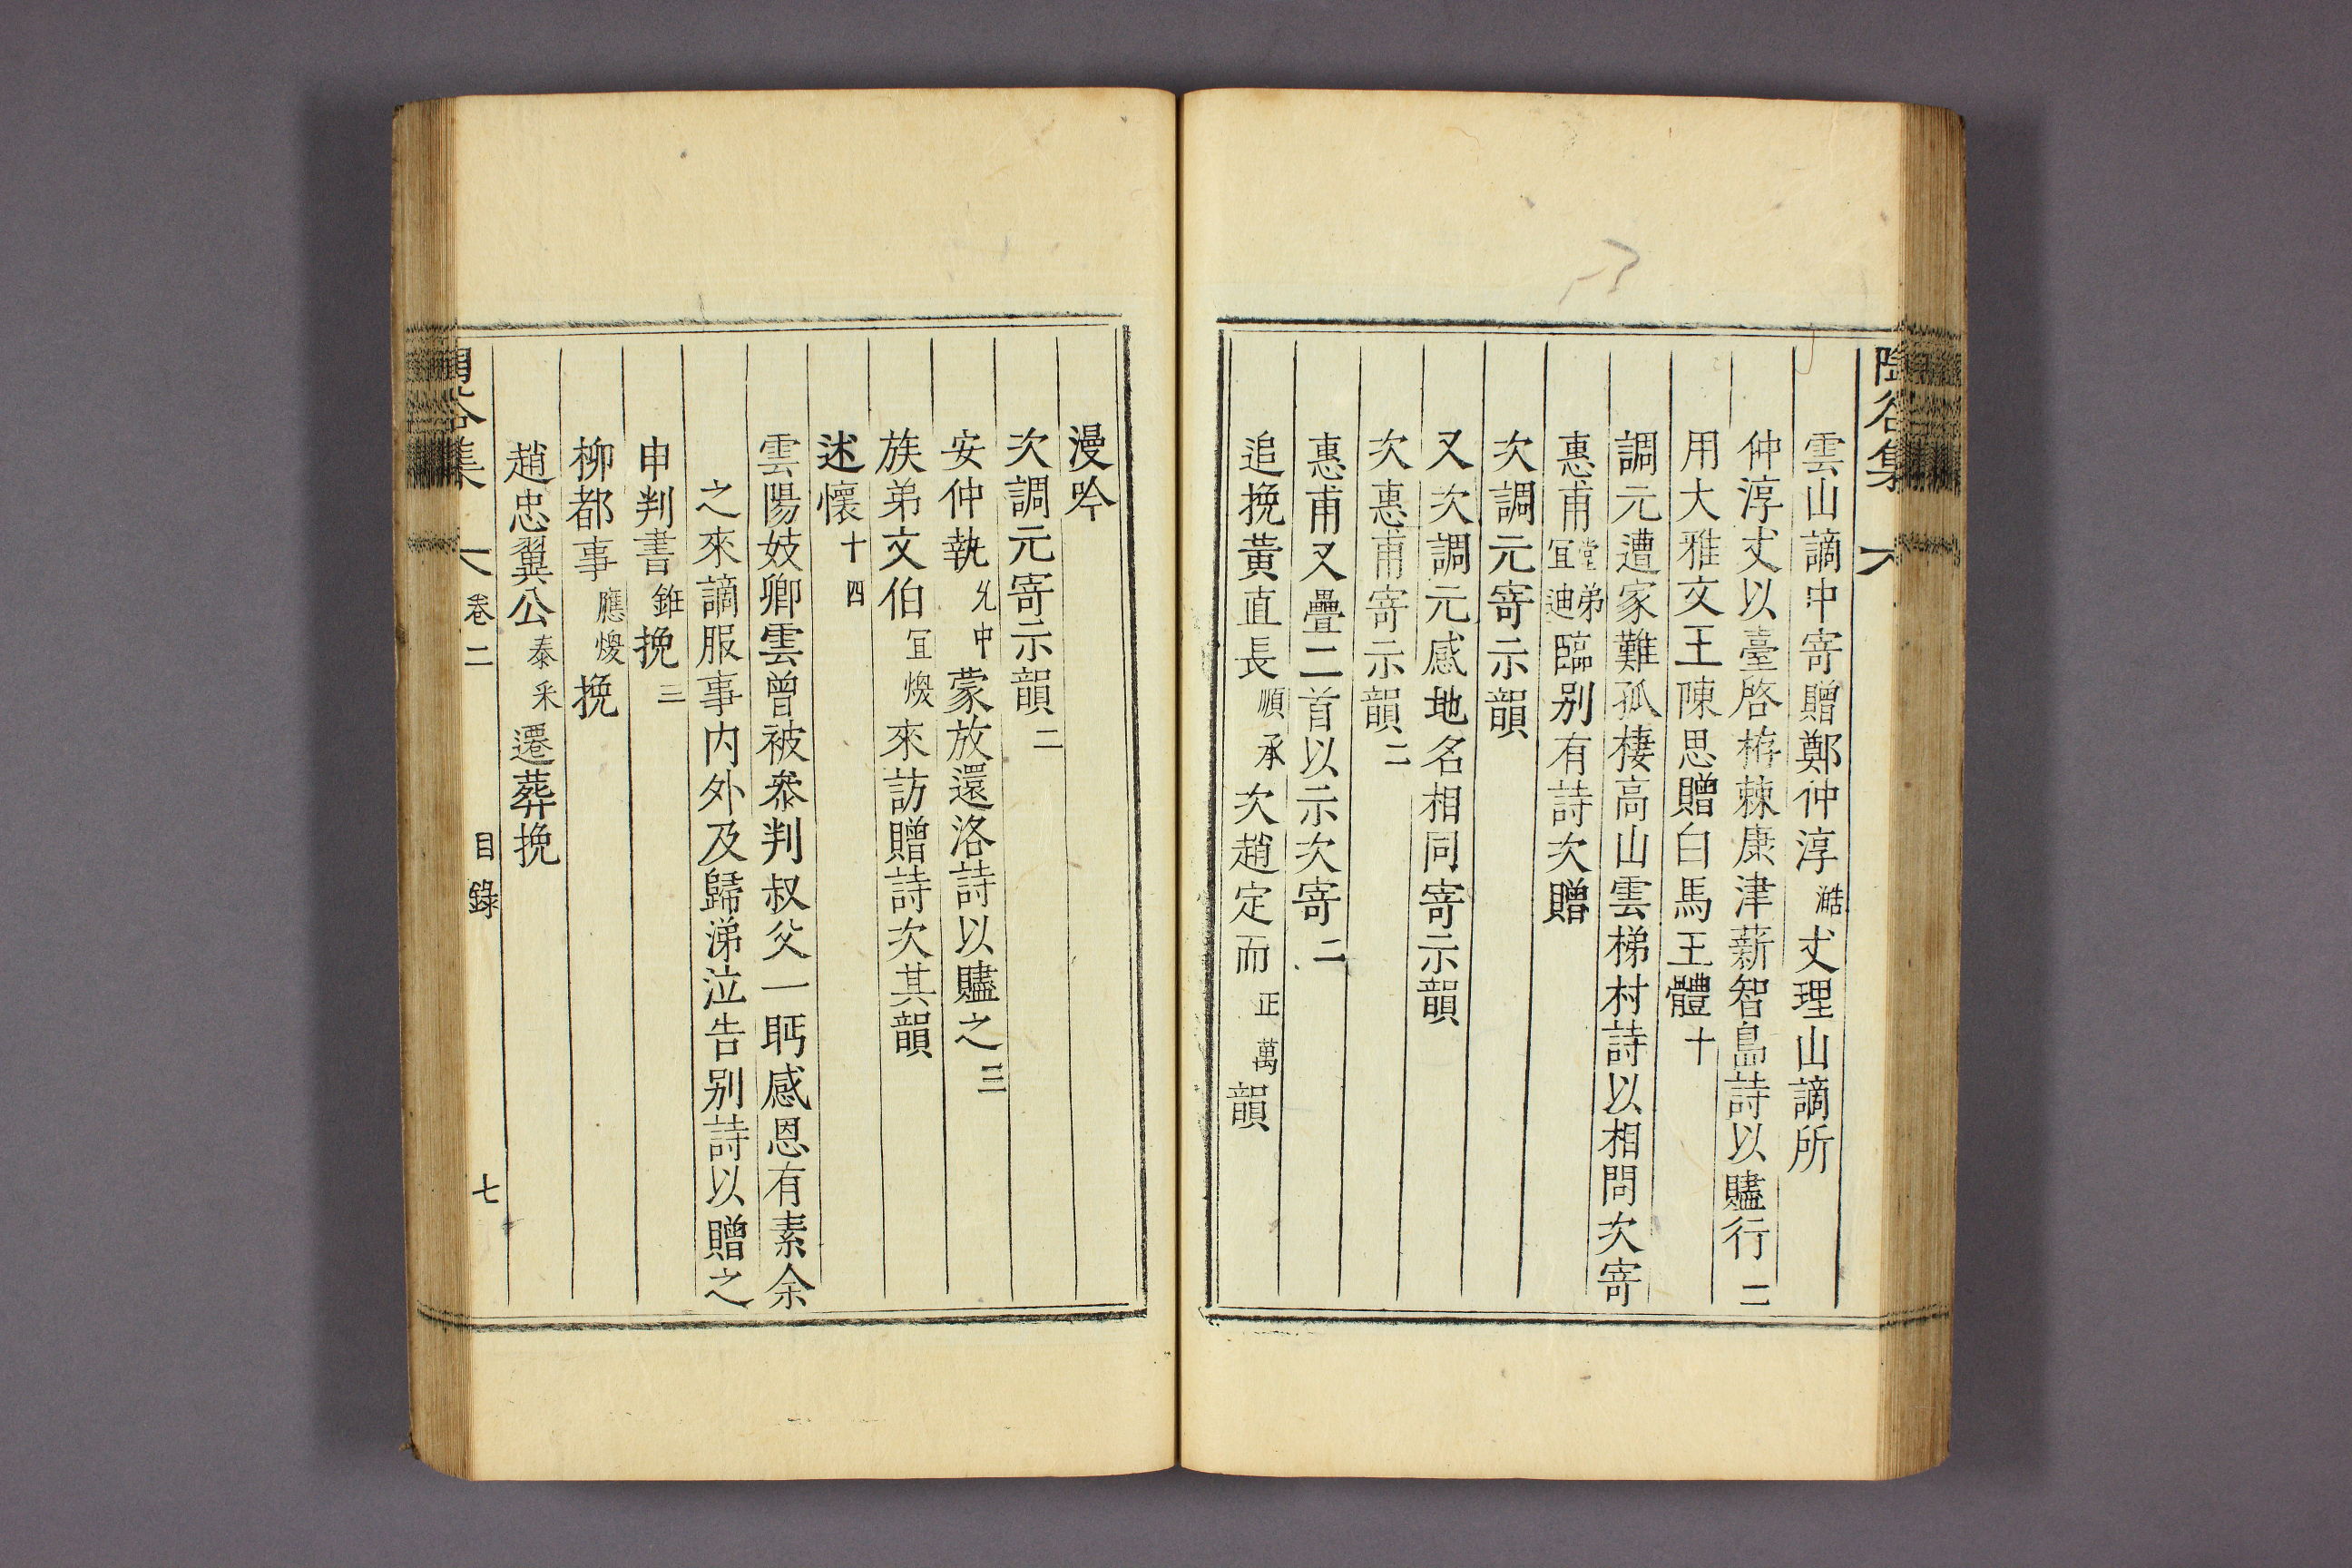 陶谷集
雲山謫中寄贈鄭仲淳澔丈理山謫所
仲淳丈以臺啓栫棘康津薪智島詩以贐行二
用大雅文王陳思贈白馬王體十
調元遭家難孤棲高山雲梯村詩以相問次寄
惠甫堂弟宜迪臨別有詩次贈
次調元寄示韻
又次調元感地名相同寄示韻
次惠甫寄示韻二
惠甫又疊二首以示次寄二
追挽黃直長順承次趙定而正萬韻
漫吟
次調元寄示韻二
安仲執允中蒙放還洛詩以贐之三
族弟文伯宜煥來訪贈詩次其韻
述懷十四
雲陽妓卿雲曾被叅判叔父一眄感恩有素余
之來謫服事內外及歸涕泣告別詩以贈之
申判書銋挽三
柳都事應煥挽
趙忠翼公泰采遷葬挽
陶谷集 卷二 目錄 七